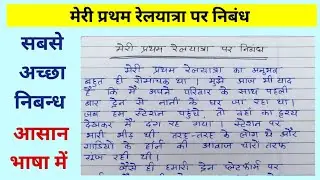 मेरी प्रथम रेलयात्रा पर निबंध
सबसे
अच्छा
निबन्ध
आसान
भाषा में
मेरी प्रथम रेलयात्रा पर निबंध
मेरी प्रथम रेलयात्रा का अनुभव
बहुत ही रोमांचक था। मुझे आज भी याद
है कि मैं अपने परिवार के साथ पहली
बार ट्रेन से नानी के घर जा रहा था।
जब हम स्टेशन पहुंचे, तो वहां का दृश्य
देखकर मैं दंग रह गया। स्टेशन पर
भारी भीड़ थी। तरह-तरह के लोग थे और
गाड़ियों के हॉर्न की आवाज चारों तरफ
गूंज रही थी।
जैसे ही हमारी ट्रेन प्लेटफॉर्म पर